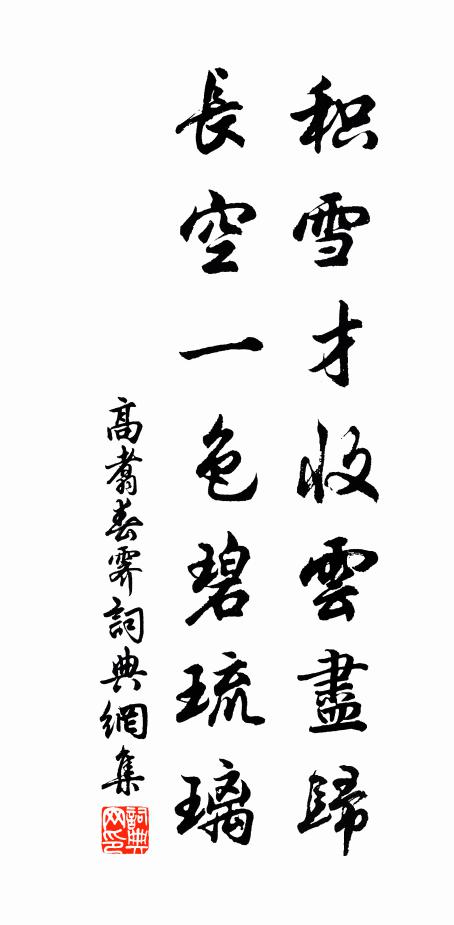 积雪才收雲盡歸
長空一色碧琉璃
高翥春霽詞典網集
詞典網印